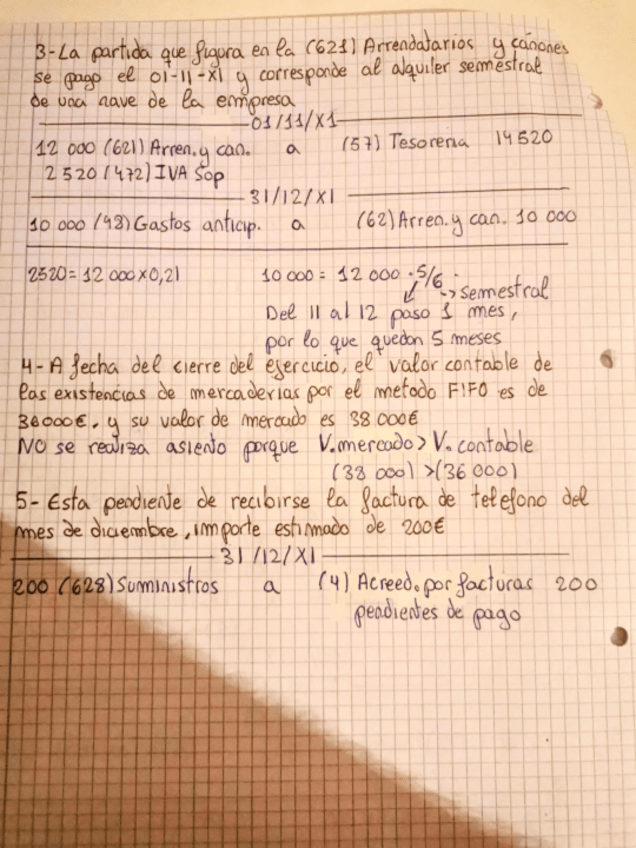 3-La partida que figura en la (621) Arrendatarios y cánones
se pago el 01-11-X1 y corresponde al alquiler semestral
de una nave de la empresa
01/11/X1
12 000 (621) Arren. y can. a (57) Tesoreria 14520
2 520 (472) IVA Sop
31/12/X1
10 000 (48) Gastos anticip. a (62) Arren. y can. 10 000
2520 = 12 000 x 0,21 10 000 = 12 000 · 5/6
-> semestral
Del 11 al 12 paso 1 mes,
por lo que quedan 5 meses
4- A fecha del cierre del ejercicio, el valor contable de
las existencias de mercaderias por el metodo FIFO es de
36000€, y su valor de mercado es 38 000€
NO se realiza asiento porque V.mercado > V. contable
(38 000) > (36 000)
5- Esta pendiente de recibirse la factura de telefono del
mes de diciembre, importe estimado de 200€
31/12/X1
200 (628) Suministros a (4) Acreed. por facturas 200
pendientes de pago